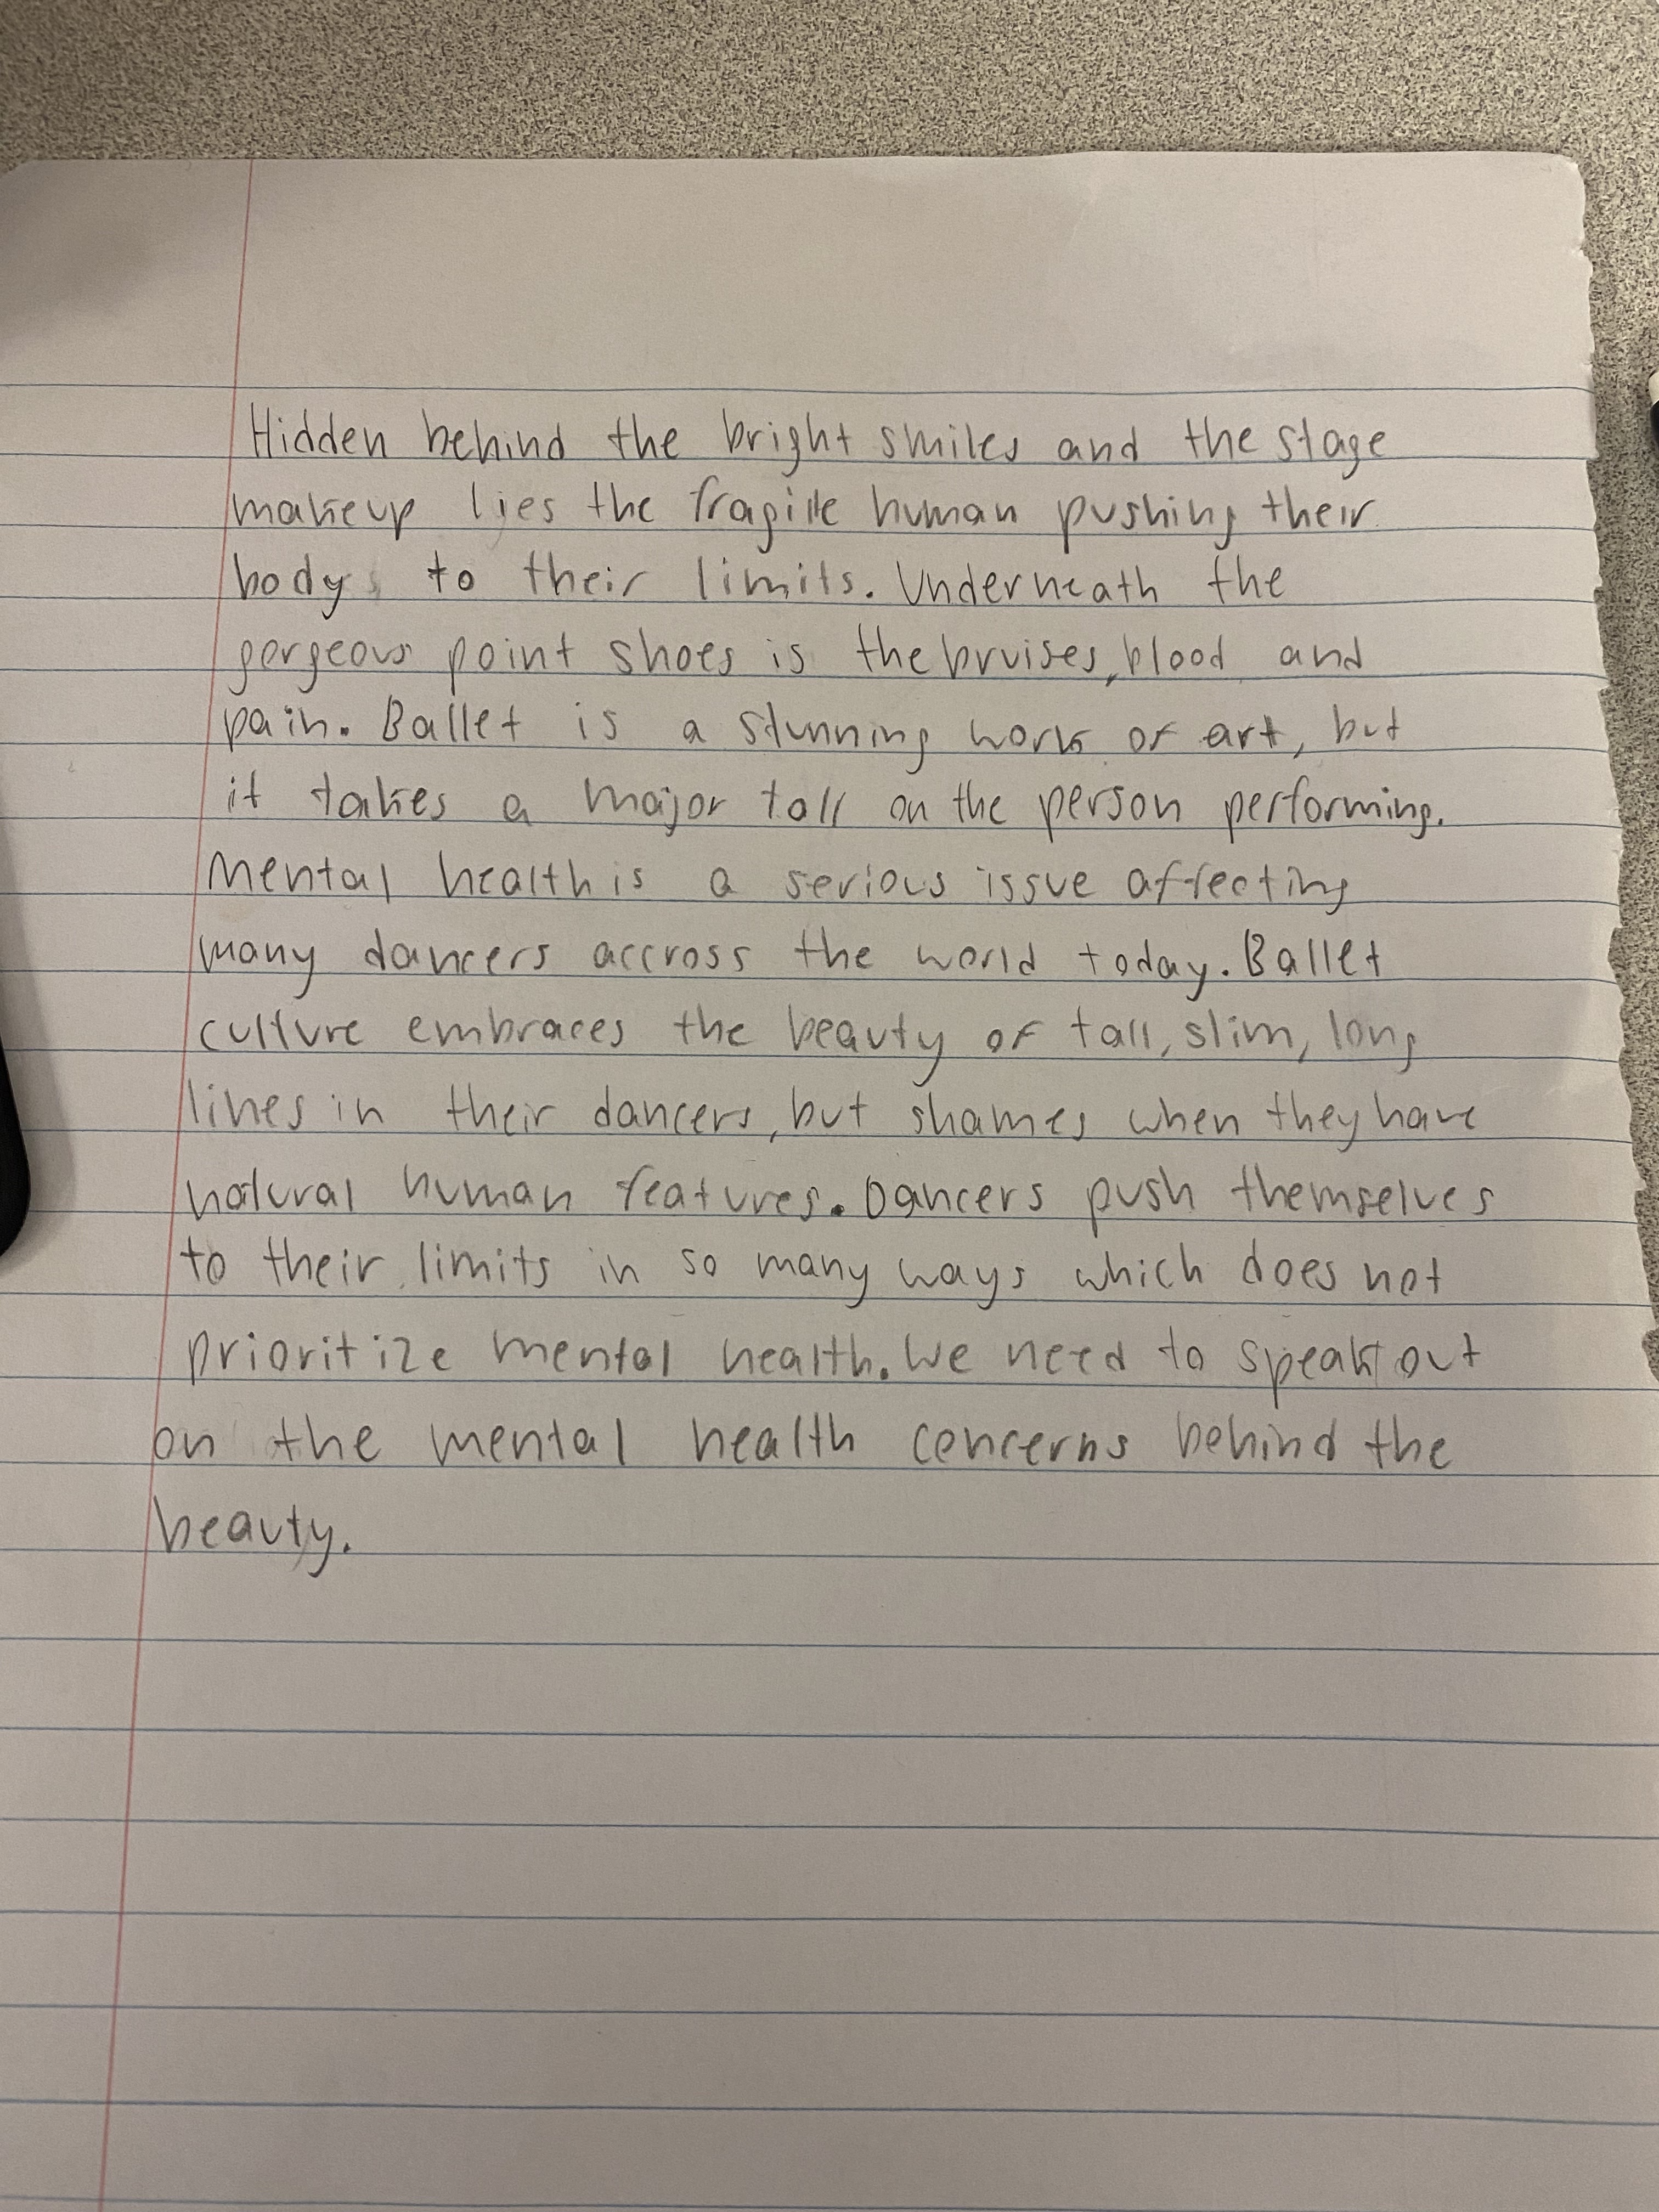 Hidden behind the bright smiles and the stage
makeup lies the fragile human pushing their
body to their limits. Underneath the
gorgeous point shoes is the bruises, blood and
pain. Ballet is a stunning work of art, but
it takes a major toll on the person performing.
Mental health is a serious issue affecting
many dancers accross the world today. Ballet
culture embraces the beauty of tall, slim, long
lines in their dancers, but shames when they have
natural human features. Dancers push themselves
to their limits in so many ways which does not
prioritize mental health. We need to speak out
on the mental health concerns behind the
beauty.